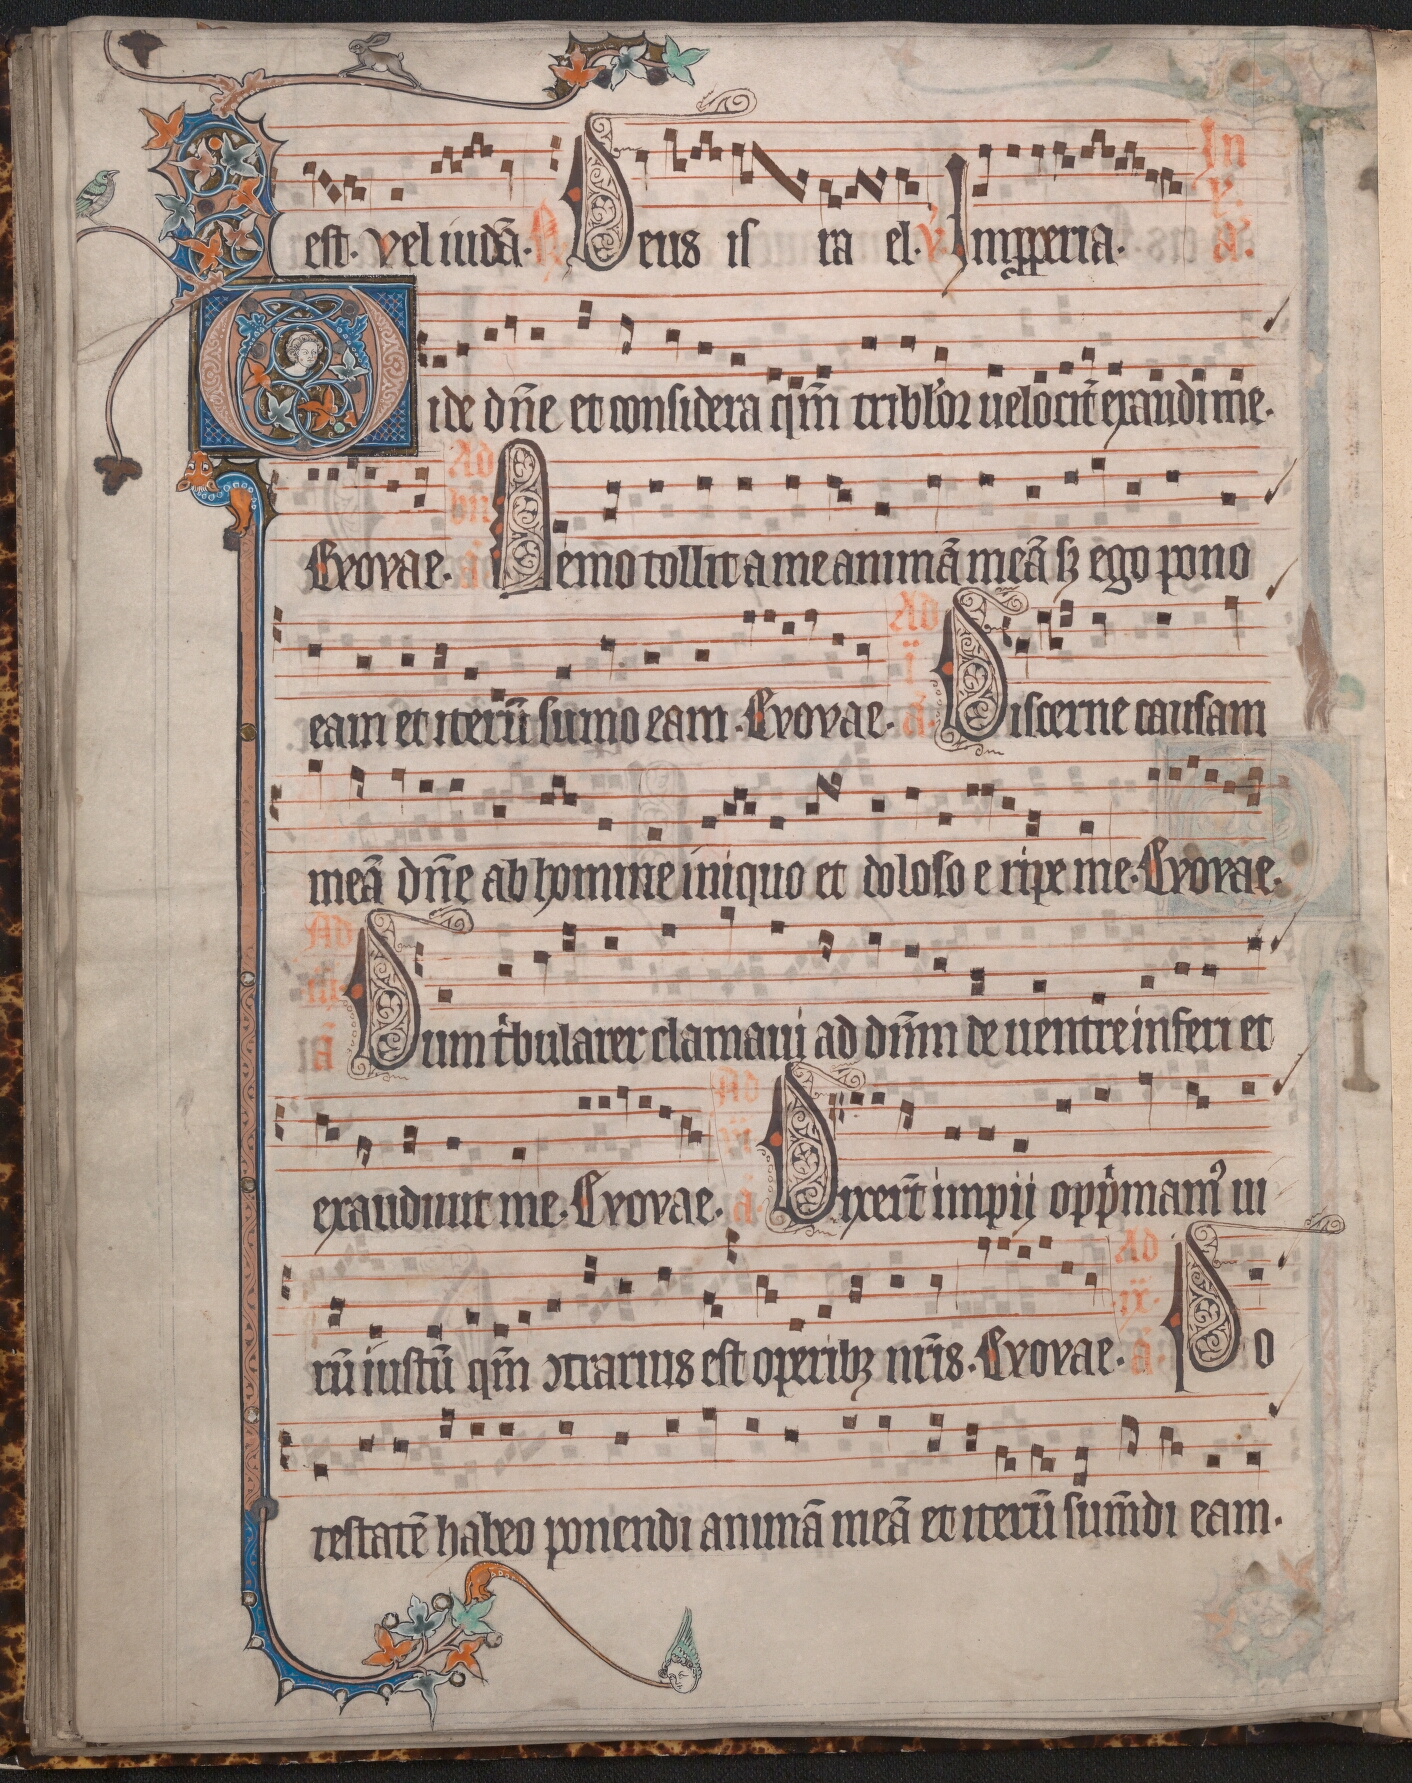 In
est. vel iudā. R Deus is ra el. V Imꝓperia. x. a.
Vide dn̄e et considera qm̄ tribl'or uelocit̄ exaudi me.
Ad
bn̄
Evovae. ā Nemo tollit a me animā meā sꝫ ego pono
Ad
i
eam et iterū sumo eam. Evovae. ā. Discerne causam
meā dn̄e ab homine iniquo et doloso e ripe me. Evovae.
Ad
iii
ā Dum t'bularer clamaui ad dn̄m de uentre inferi et
Ad
vi
exaudiuit me. Evovae. ā. Dixer̄t impij opp'mamꝰ ui
Ad
ix.
rū iustū qm̄ ↄtrarius est operibꝫ nr̄is. Evovae. ā. Po
testatē habeo ponendi animā meā et iterū sum̄di eam.